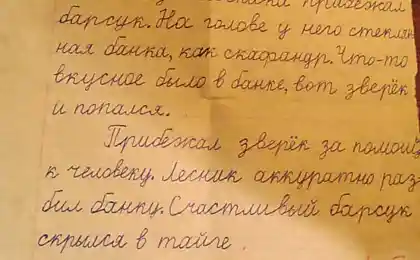 прибежал
барсук. На голове у него стеклян
ная банка, как скафандр. Что-то
вкусное было в банке, вот зверёк
и попался.
Прибежал зверёк за помощь
к человеку. Лесник аккуратно раз
бил банку. Счастливый барсук
скрылся в тайге.